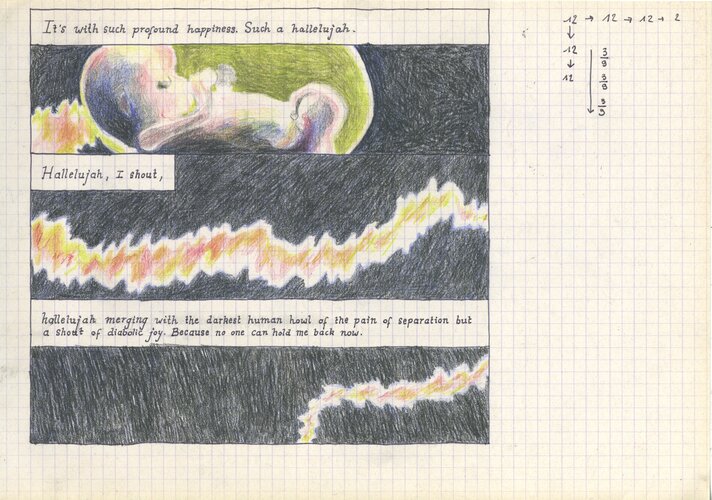 It's with such profound happiness. Such a hallelujah.
Hallelujah, I shout,
hallelujah merging with the darkest human howl of the pain of separation but
a shout of diabolic joy. Because no one can hold me back now.
12 → 12 → 12 → 2
↓
12
↓
12
3
9
3
9
3
9